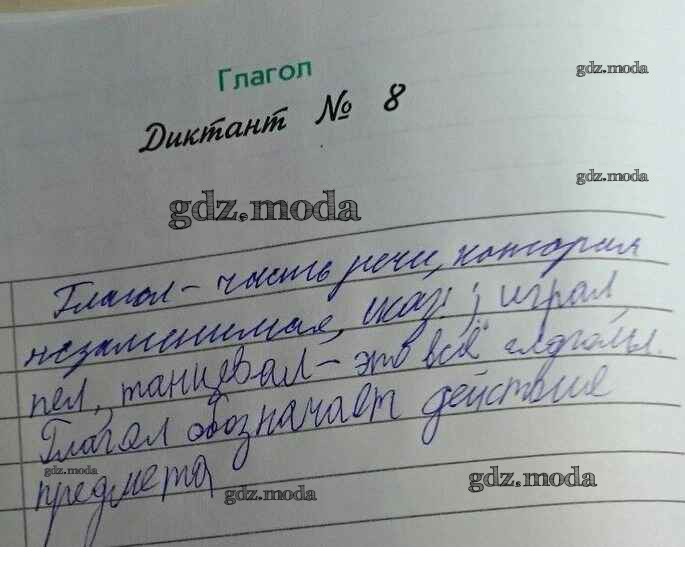 Глагол
gdz.moda
Диктант № 8
gdz.moda
gdz.moda
Глагол – часть речи, которая
незаменимая, играл,
пел, танцевал – это всё глаголы.
Глагол обозначает действие
gdz.moda
предмета
gdz.moda
gdz.moda